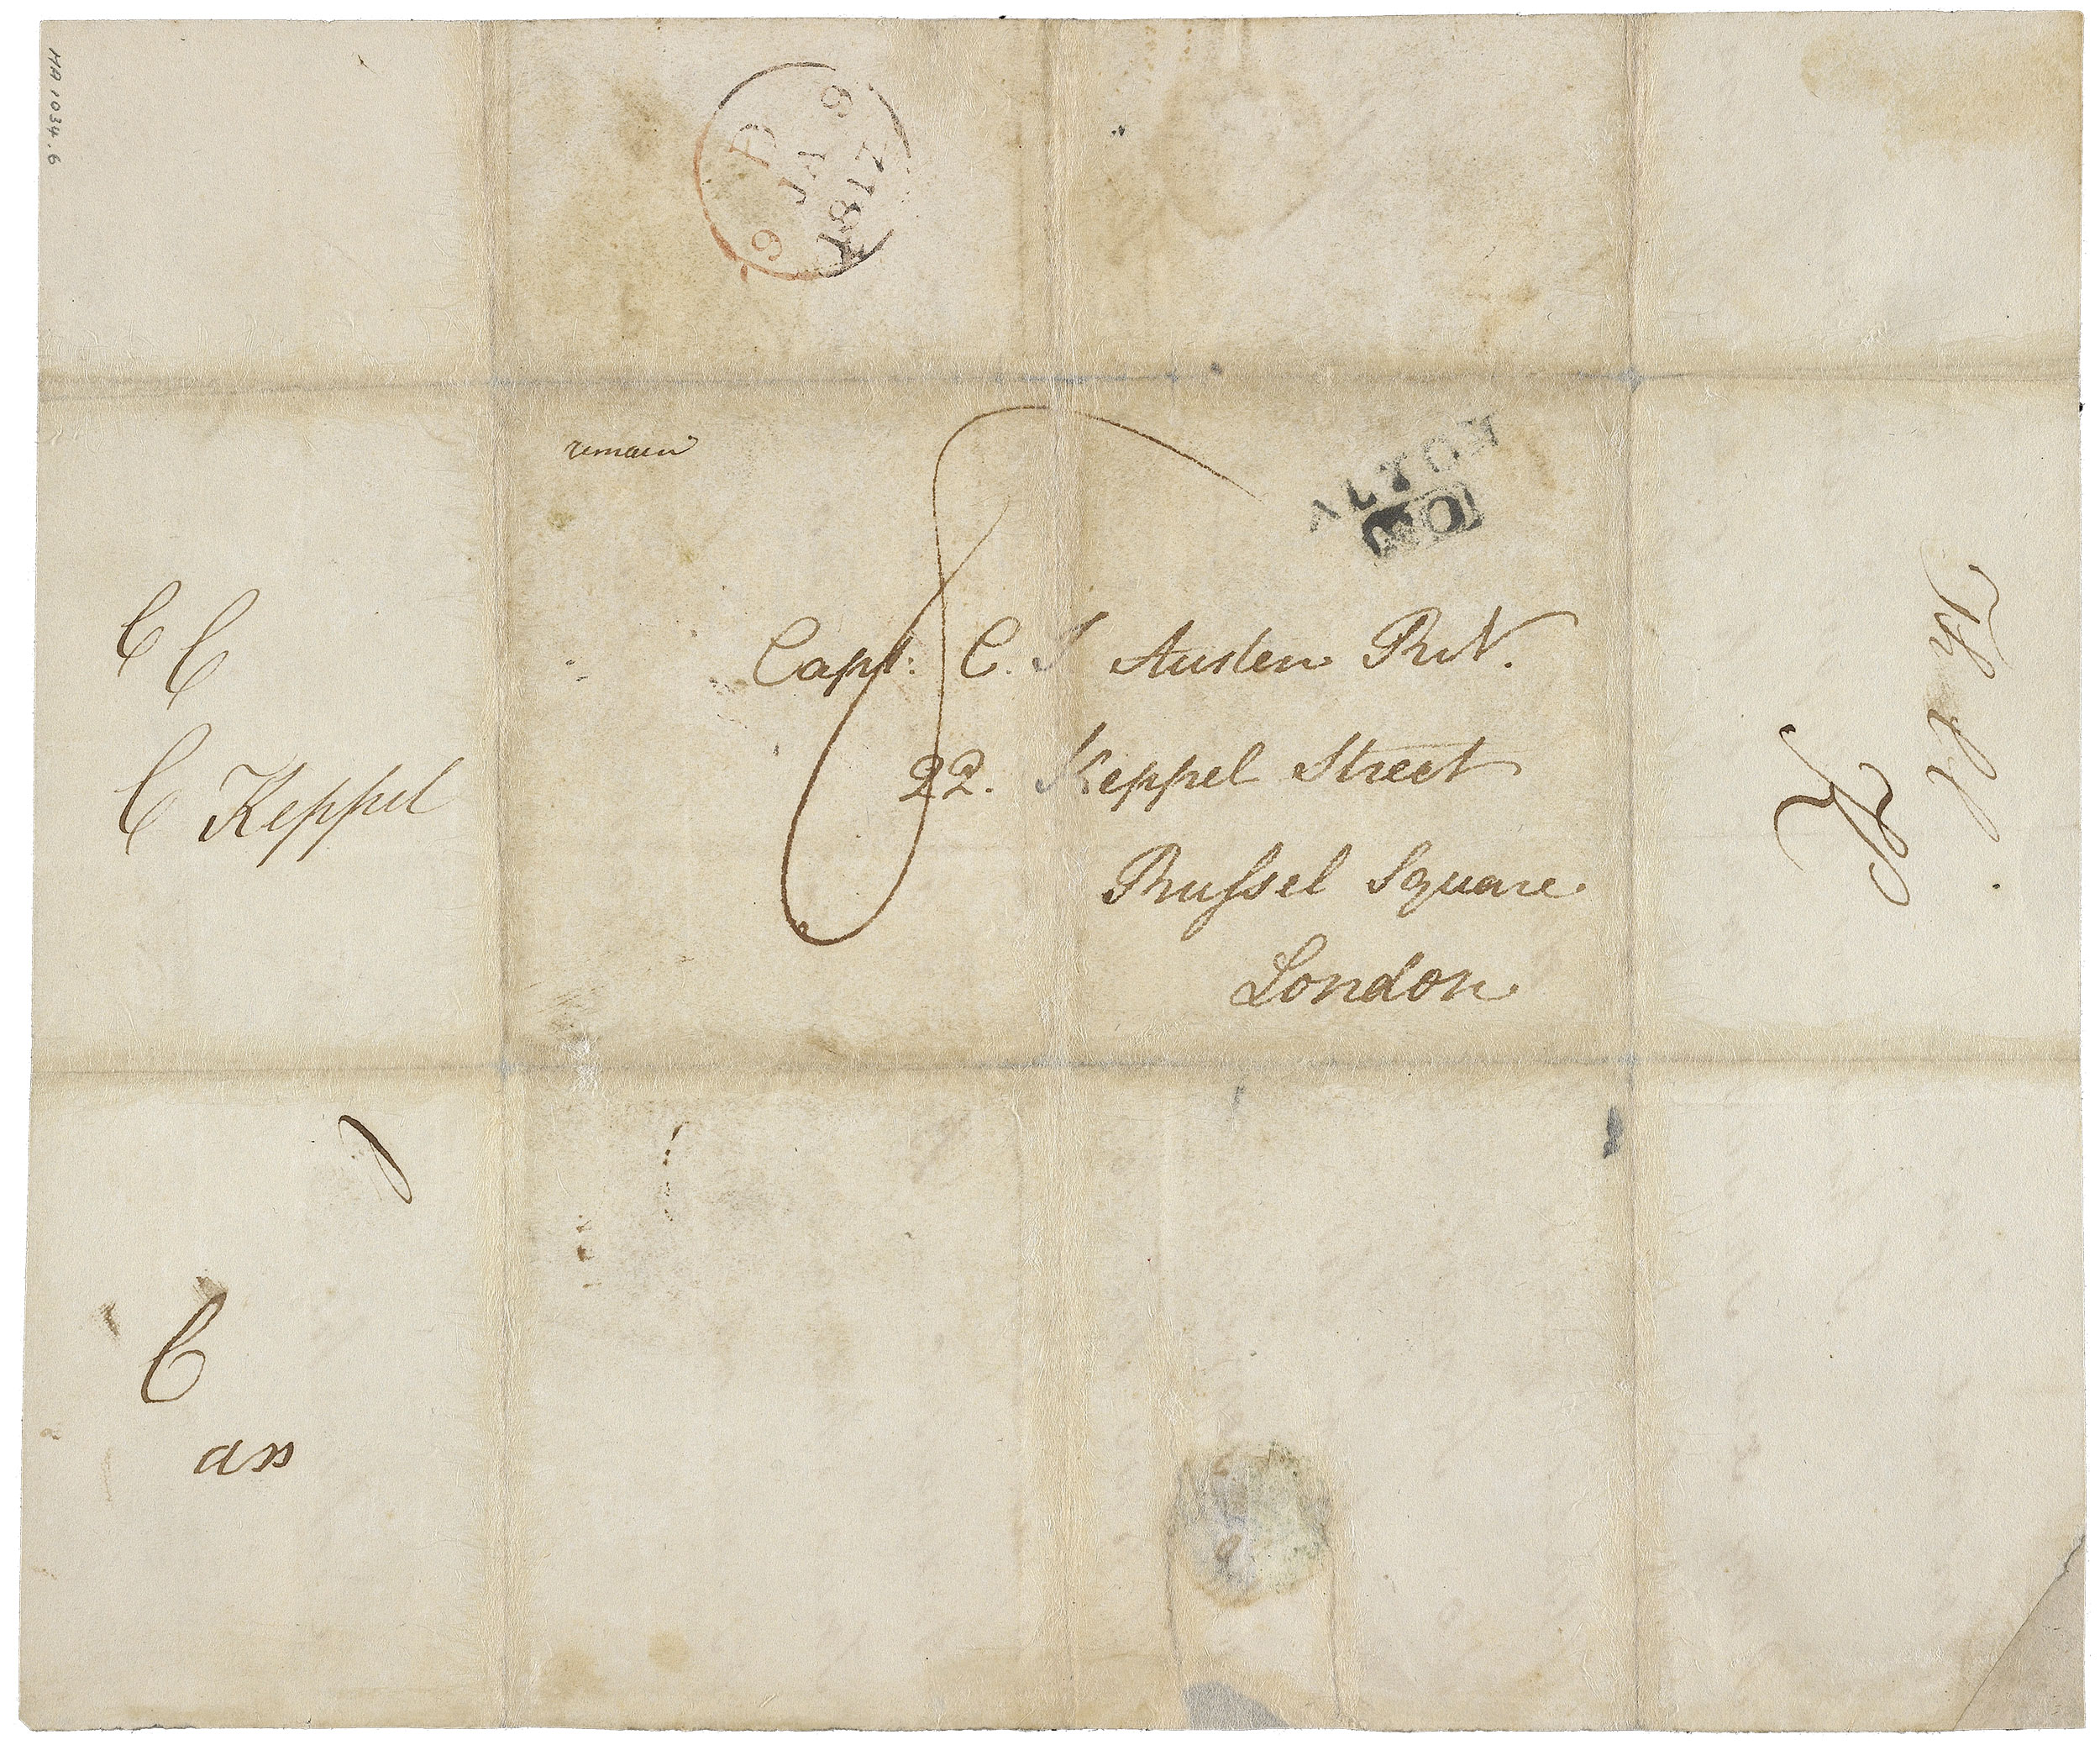 MA 1034.6
D
9 JA 9
1817
remain
8
ALTON
Capt. C. J Austen RN.
22. Keppel Street
Russel Square
London
C
C
C Keppel
C
ass